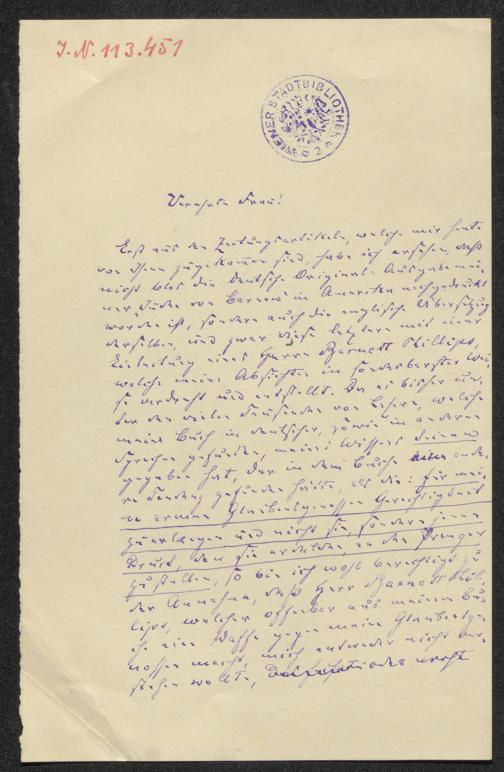 J.N. 113.451
WIENER STADTBIBLIOTHEK
Verehrte Frau!
Erst aus den Zeitungsartikeln, welche mir heute
von Ihnen zugekommen sind, habe ich ersehen, daß
nicht blos die deutsche Original-Ausgabe mei-
ner „Juden von Barnow" in Amerika nachgedruckt
worden ist, sondern auch die englische Übersetzung
derselben, und zwar diese letztere mit einer
Einleitung eines Herrn Barnett Phillips,
welche meine Absichten in sonderbarster Wei-
se verdreht und entstellt. Da es bisher un-
ter den vielen Tausenden von Lesern, welche
mein Buch in deutscher, sowie in anderen
Sprachen gefunden, meines Wissens keinen
gegeben hat, der in dem Buche eine ande-
re Tendenz gefunden hätte, als die: für mei-
ne armen Glaubensgenossen Gerechtigkeit
zu erlangen und nicht sie, sondern jenen
Druck, den sie erdulden, an den Pranger
zu stellen, so bin ich wohl berechtigt zu
der Annahme, daß Herr Barnett Phil-
lips, welcher offenbar aus meinem Bu-
che eine Waffe gegen meine Glaubensge-
nossen macht, mich entweder nicht ver-
stehen wollte, oder nicht